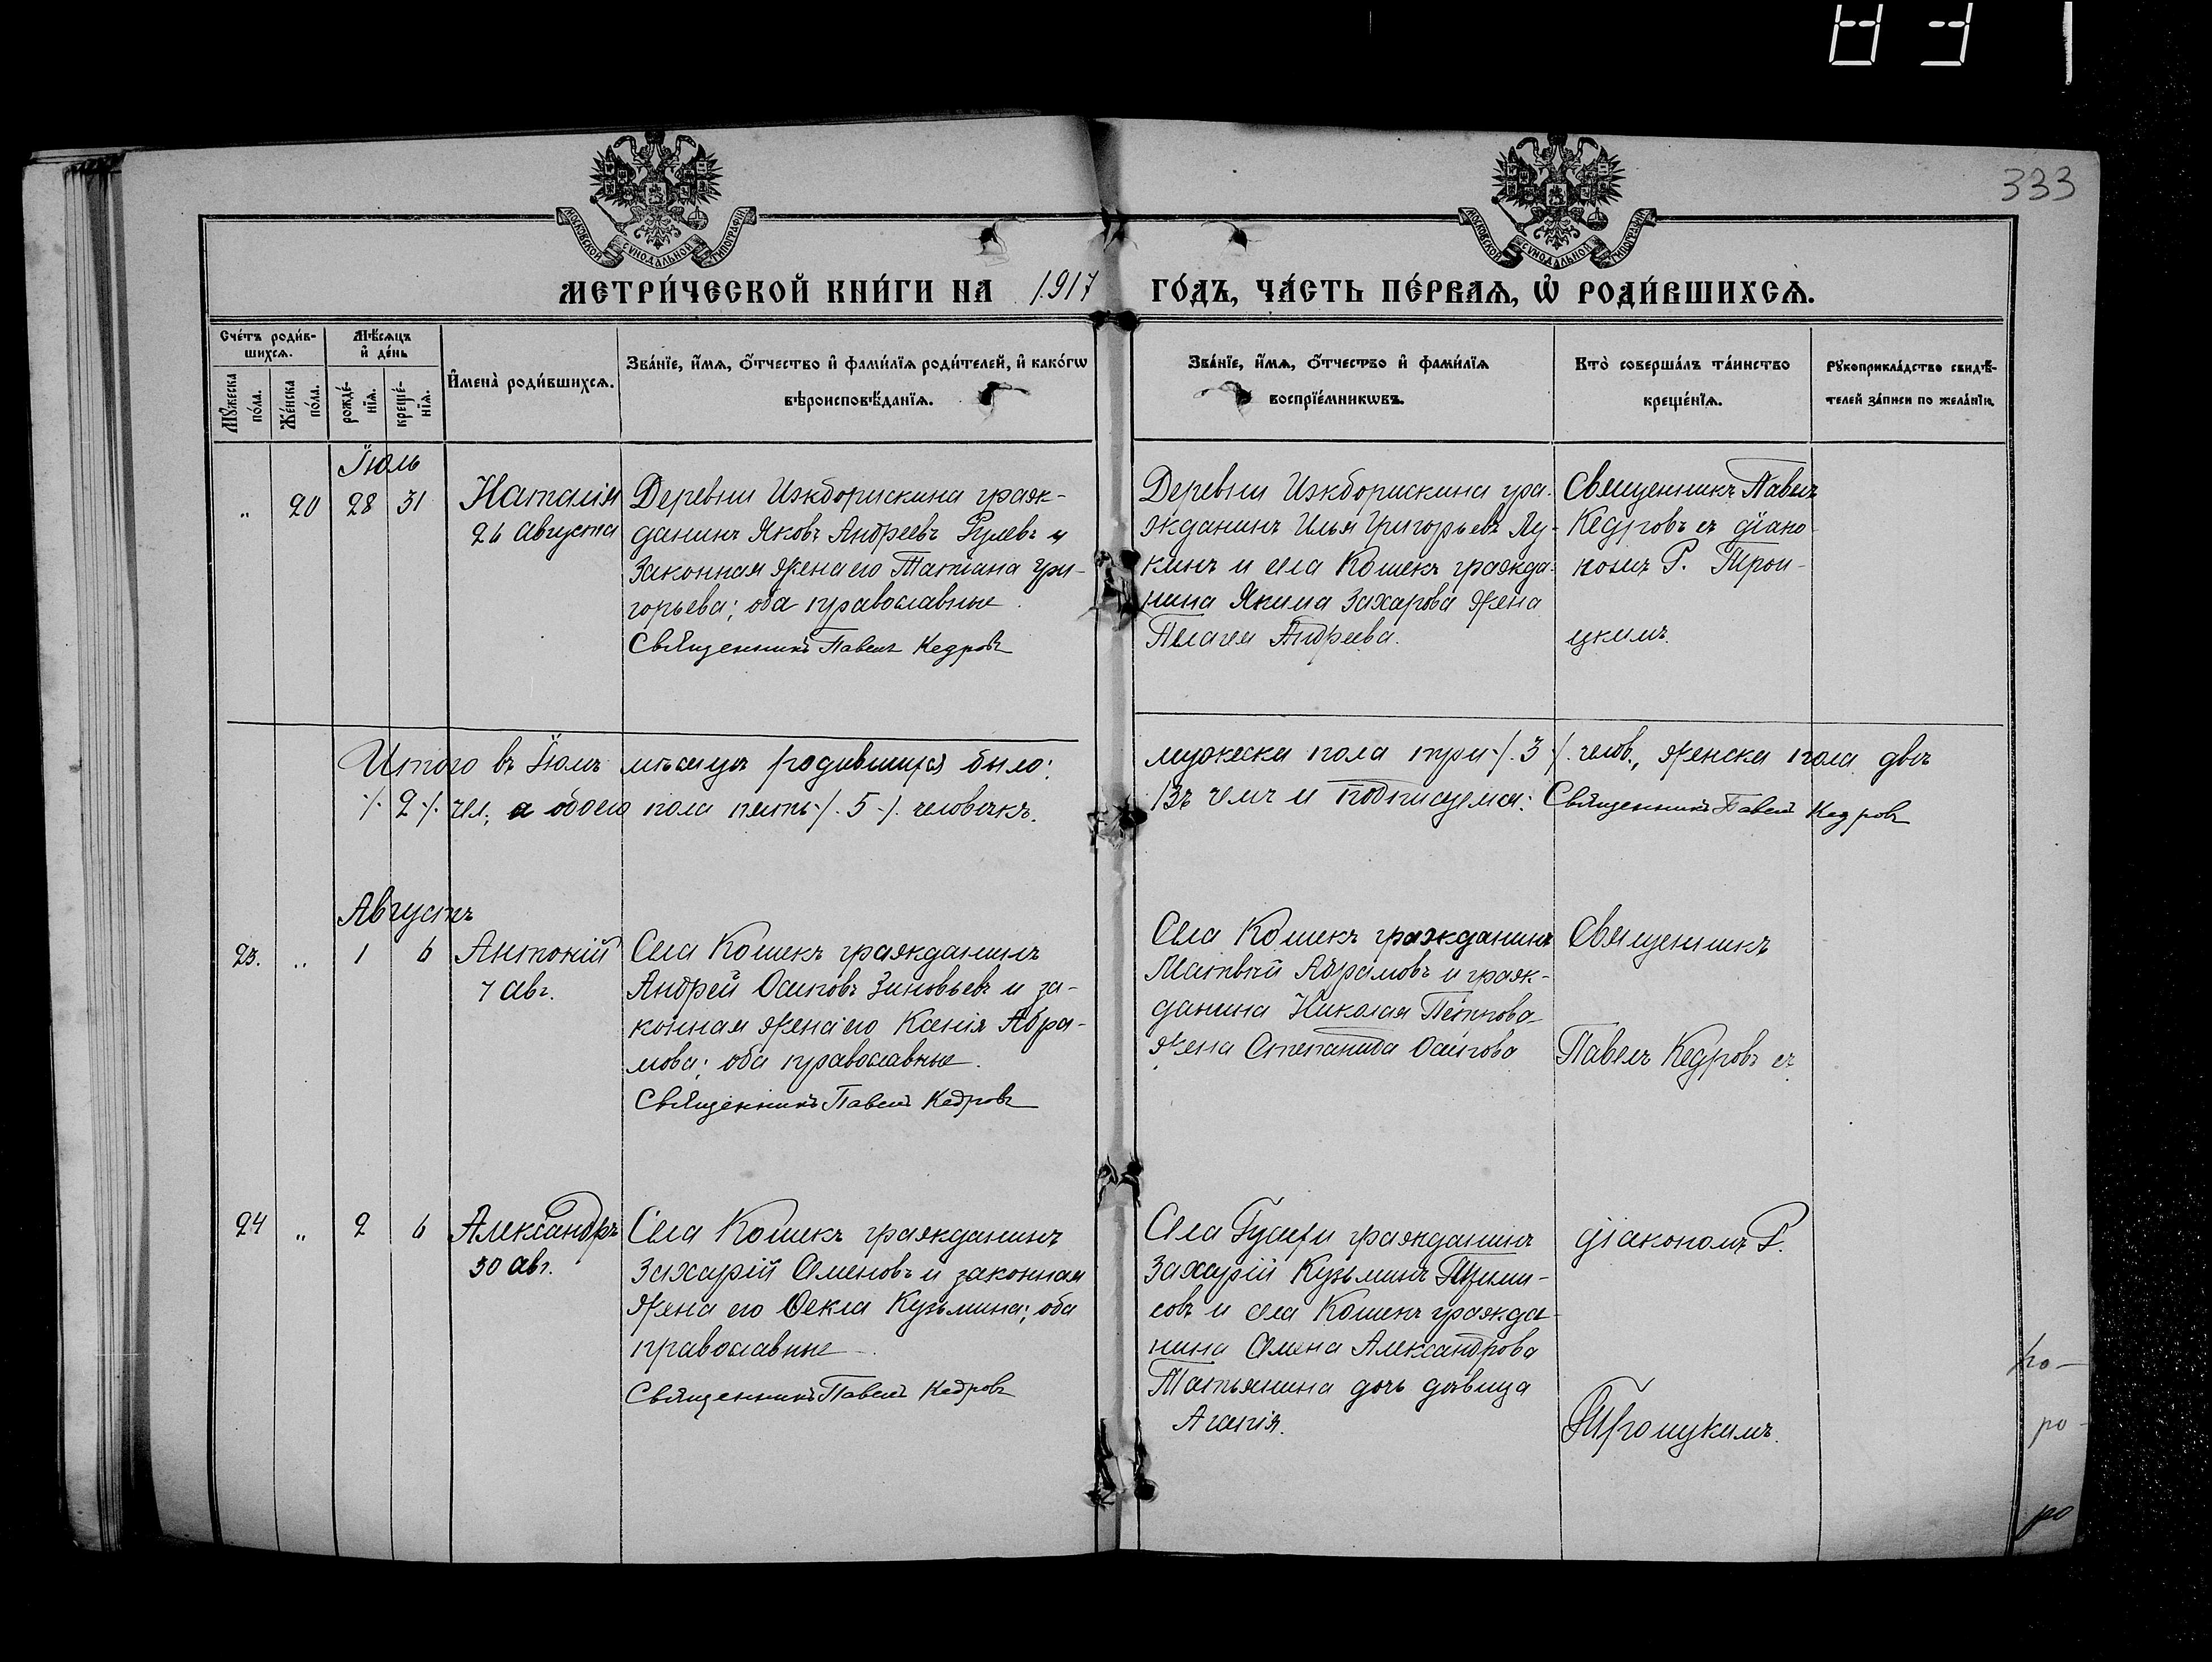 333
МОСКОВСКОЙ СѴНОДАЛЬНОЙ ТИПОГРАФІИ
МОСКОВСКОЙ СѴНОДАЛЬНОЙ ТИПОГРАФІИ
МЕТРИ́ЧЕСКОЙ КНИ́ГИ НА 1917 ГО́ДЪ, ЧА́СТЬ ПЕ́РВАѦ, Ѡ҆ РОДИ́ВШИХСѦ.
Сче́тъ роди́в-
шихсѧ.
Мꙋ́жеска
по́ла.
Же́нска
по́ла.
Мѣ́сѧцъ
и҆ де́нь
рожде́-
нїѧ.
креще́-
нїѧ.
И҆мена̀ роди́вшихсѧ.
Зва́нїе, и҆́мѧ, ѻ҆́тчество и҆ фами́лїѧ роди́телей, и҆ како́гѡ
вѣроисповѣ́данїѧ.
Зва́нїе, и҆́мѧ, ѻ҆́тчество и҆ фами́лїѧ
воспрїе́мникѡвъ.
Кто̀ соверша́лъ та́инство
креще́нїѧ.
Рꙋкоприкла́дство свидѣ́-
телей за́писи по жела́нїю.
Іюль
„ 20 28 31
Наталія
26 августа
Деревни Изкборискина граж-
данинъ Яковъ Андреевъ Рулевъ и
законная жена его Татiана Гри-
горьева; оба православные.
Священникъ Павелъ Кедровъ
Деревни Изкборискина гра-
жданинъ Илья Григорьевъ Лу-
кинъ и села Кошекъ гражда-
нина Якима Захарова жена
Пелагея Андреева.
Священникъ Павелъ
Кедровъ съ діако-
номъ Р. Трои-
цкимъ.
Итого въ Іюлѣ мѣсяцѣ родившихся было: мужеска пола три ·/. 3 ·/. челов., женска пола двѣ
·/. 2 ·/. чел., а обоего пола пять ·/. 5 ·/. человѣкъ. Въ чемъ и подписуемся: Священникъ Павелъ Кедровъ
Августъ
23. „ 1 6
Антоній
7 авг.
Села Кошекъ гражданинъ
Андрей Осиповъ Зиновьевъ и за-
конная жена его Ксенія Абра-
мова; оба православные.
Священникъ Павелъ Кедровъ
Села Кошекъ гражданинъ
Матвѣй Абрамовъ и граж-
данина Николая Петрова
жена Степанида Осипова
Священникъ
Павелъ Кедровъ съ
24 „ 2 6
Александръ
30 авг.
Села Кошекъ гражданинъ
Захарій Семеновъ и законная
жена его Ѳекла Кузьмина; оба
православные.
Священникъ Павелъ Кедровъ
Села гражданинъ
Захарій Кузьминъ
и села Кошекъ гражда-
нина Семена Александрова
Татьянина дочь дѣвица
Агапія.
діакономъ Р.
Троицкимъ.
ро-
ро